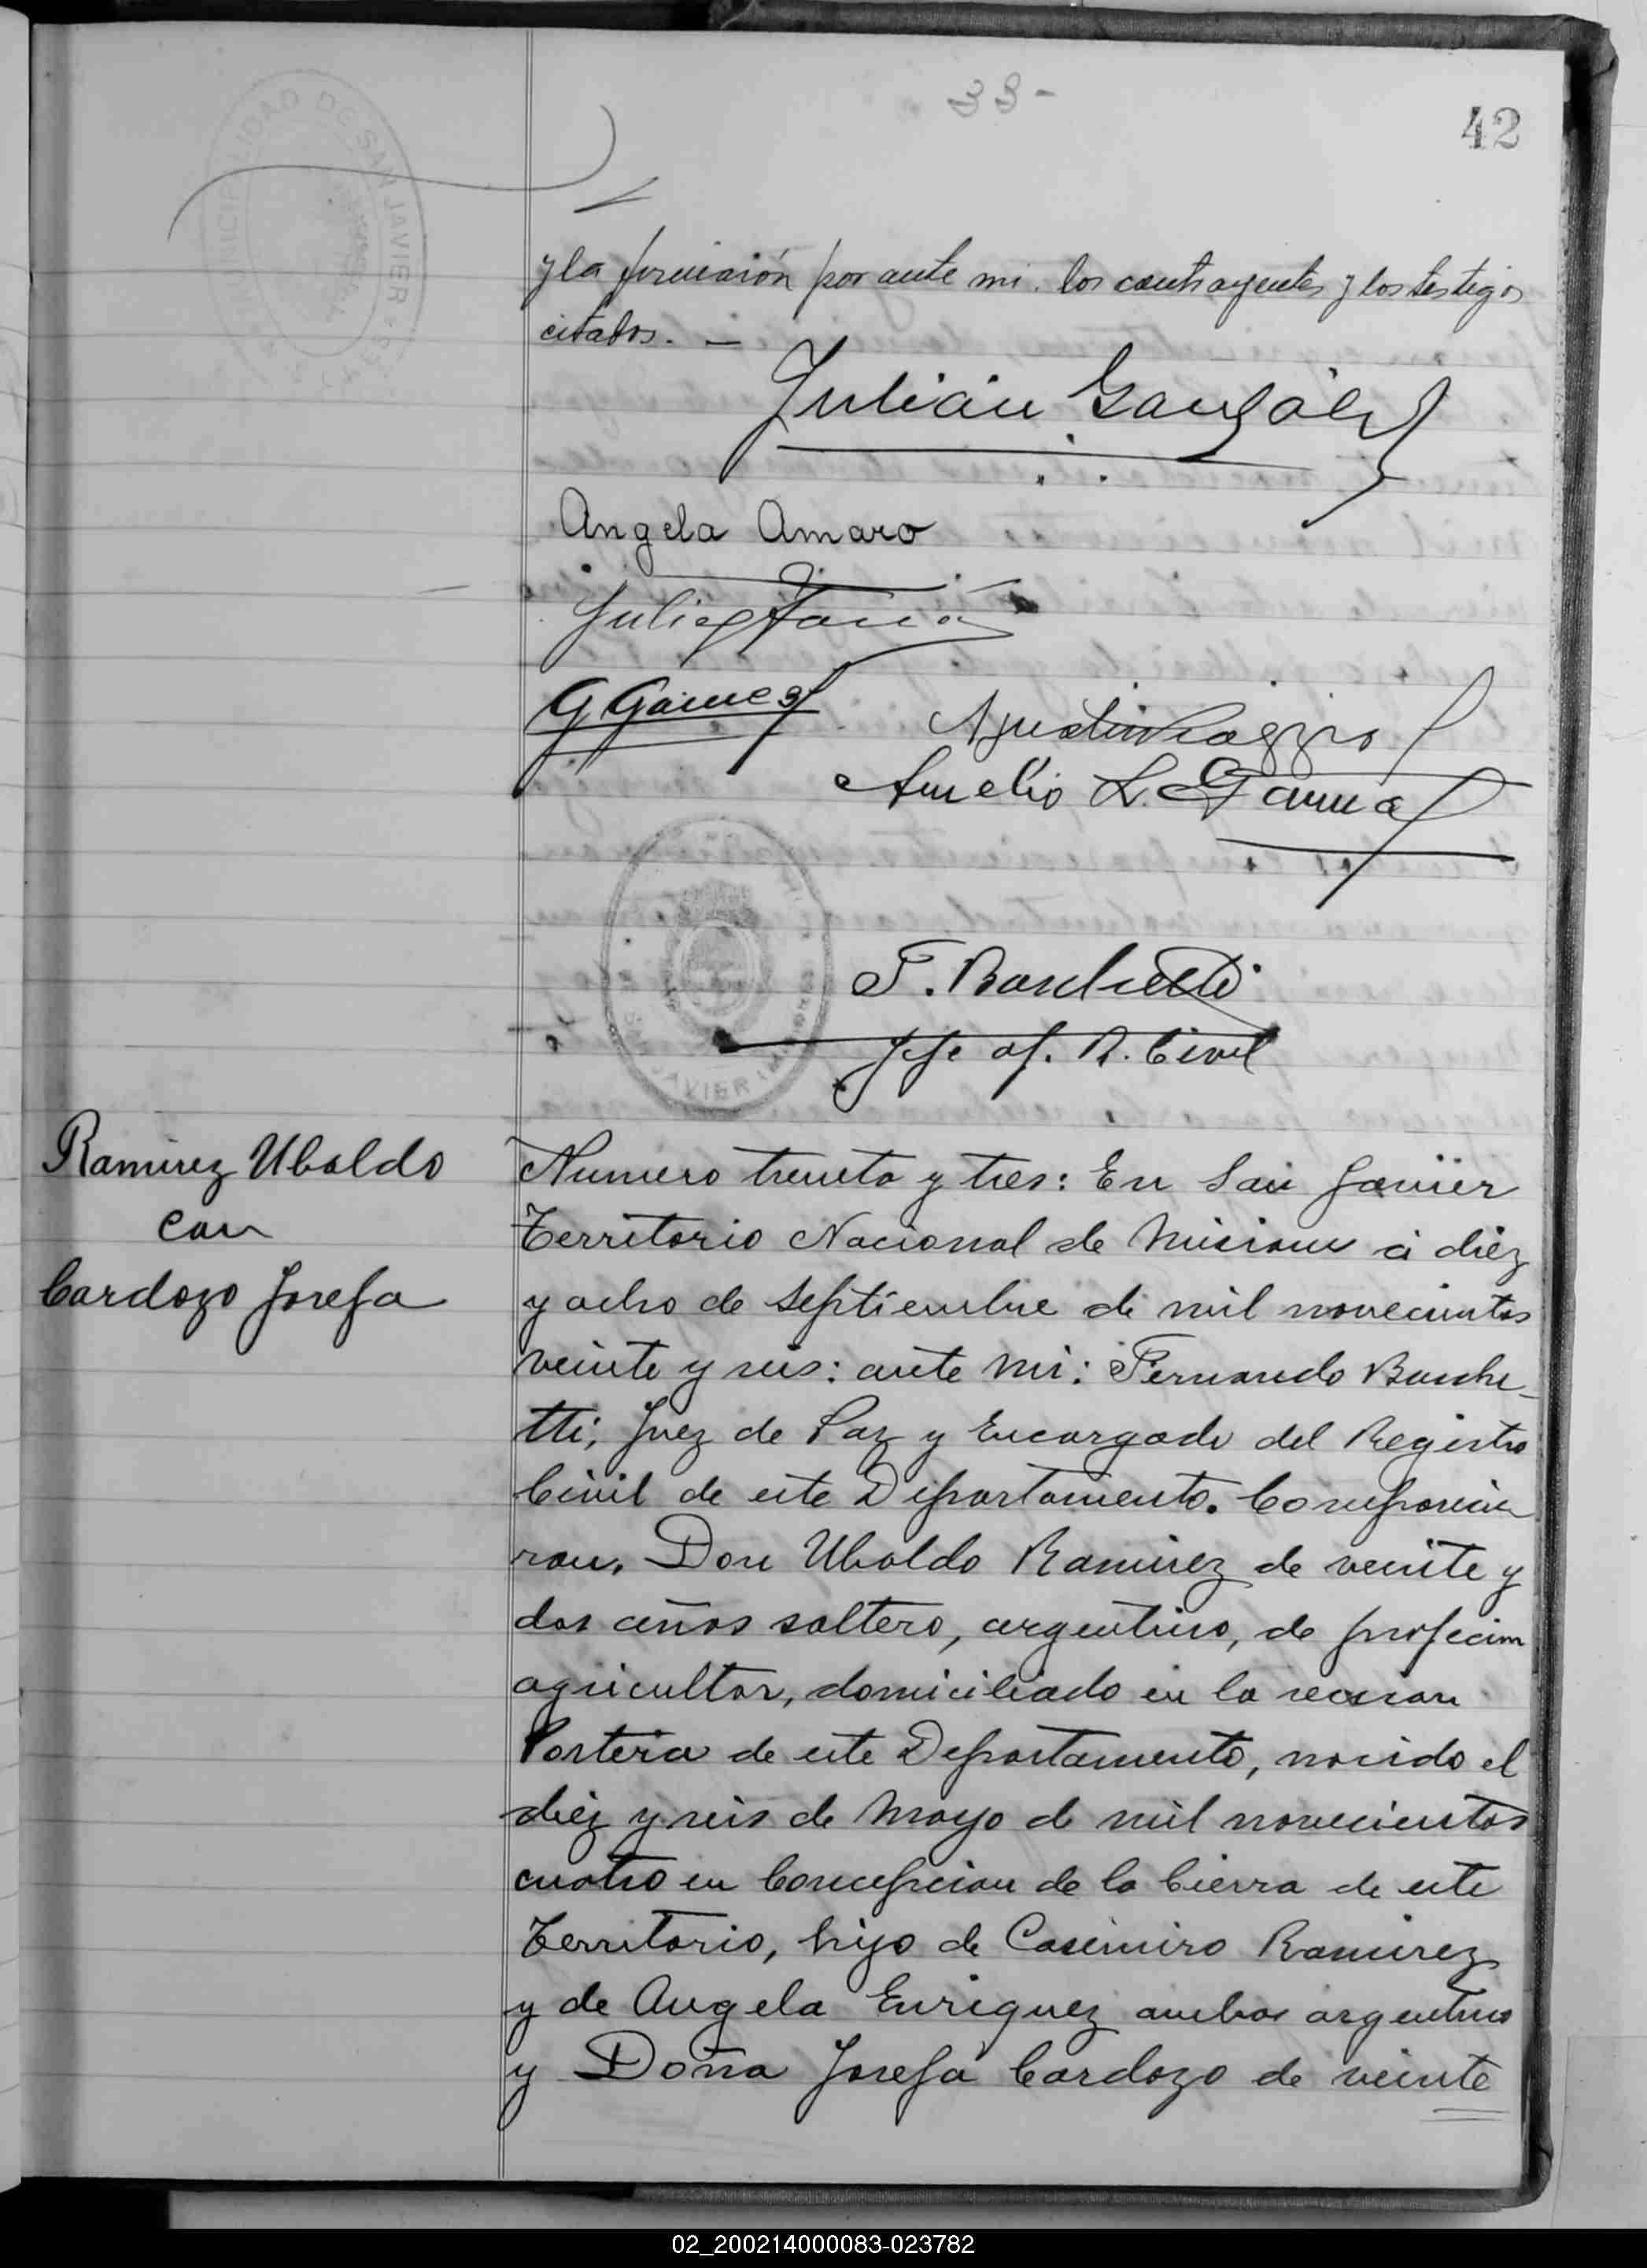 33-
42
MUNICIPALIDAD DE SAN JAVIER
y la firmarón por ante mi. los contrayentes y los testigos
citados. —
Julián Gonsález
Angela Amaro
Julio
G Gómez
Agustin
Aurelio L.
F. Buschetti
Jefe of. R. Civil
SAN JAVIER
Ramirez Ubaldo
con
Cardozo Josefa
Numero treinta y tres: En San Javier
Territorio Nacional de Misiones á diez
y ocho de Septiembre de mil novecientos
veinte y seis: ante mi: Fernando Busche-
tti, Juez de Paz y Encargado del Registro
Civil de este Departamento. Comparecie
ron. Don Ubaldo Ramirez de veinte y
dos años soltero, argentino, de profecion
agricultor, domiciliado en la seccion
Portera de este Departamento, nacido el
diez y seis de Mayo de mil novecientos
cuatro en Concepcion de la Cierra de este
Territorio, hijo de Casimiro Ramirez
y de Angela Enriquez ambos argentinos
y Doña Josefa Cardozo de veinte
02_200214000083-023782